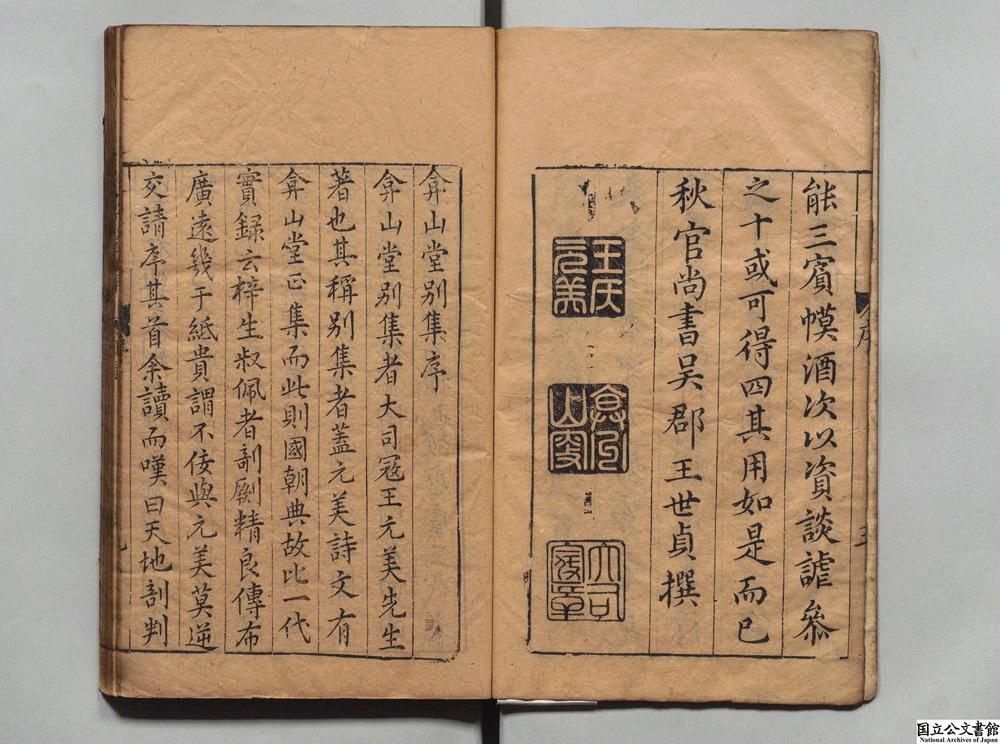 能三賓幙酒次以資談謔叅
之十或可得四其用如是而已
秋官尚書吳郡王世貞撰
王氏元美
大司寇章
弇山堂别集序
弇山堂别集者大司寇王元美先生
著也其稱别集者蓋元美詩文有
弇山堂正集而此則國朝典故比一代
實錄云梓生叔佩者剞劂精良傳布
廣遠幾于紙貴謂不佞與元美莫逆
交請序其首余讀而嘆曰天地剖判
序
国立公文書館
National Archives of Japan